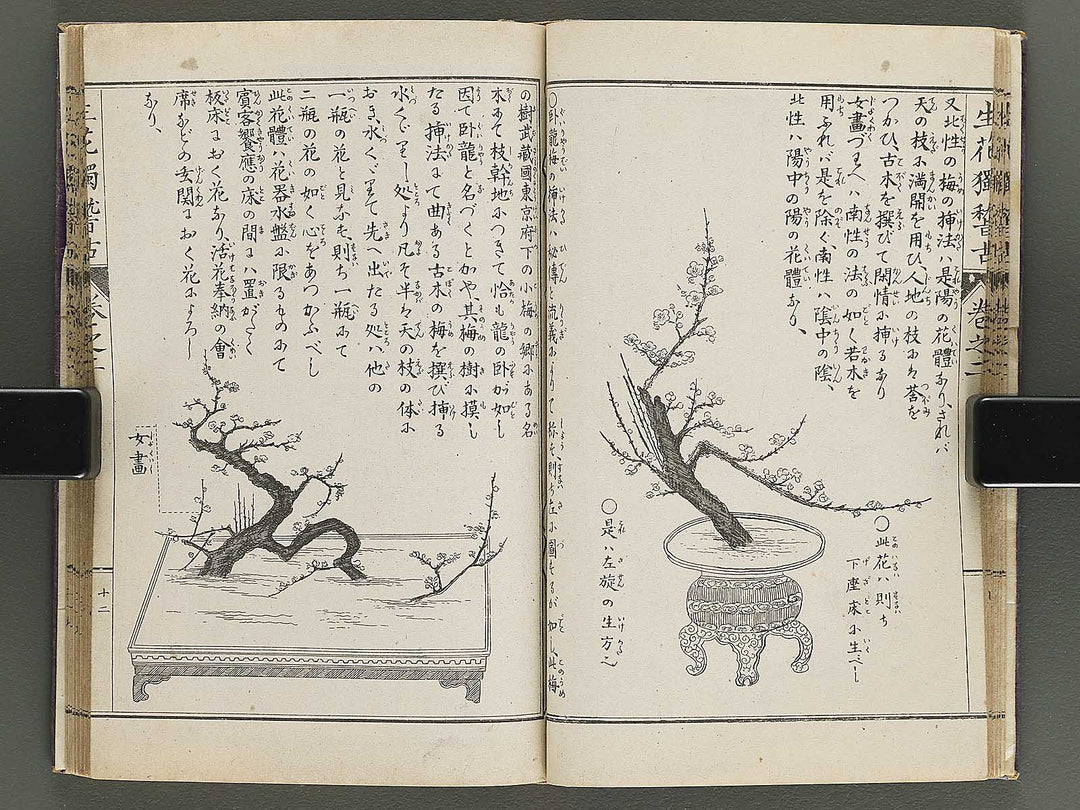 又北性の梅の挿法ハ是陽の花體あり、されバ
天の枝に満開を用ひ人地の枝は莟を
つかひ、古木を撰びて閑情に挿るあり
女畫づくへハ南性の法の如く若木を
用ふれバ是を除く、南性ハ陰中の陰、
北性ハ陽中の陽の花體あり、
〇此花ハ則ち
下座床に生べし
〇是ハ左旋の生方也
〇臥龍梅の挿法ハ秘傳と
の樹武藏國東京府下の小梅の郷にある名
木にて枝幹地につきて恰も龍の臥が如し
因て臥龍と名づくとかや、其梅の樹に摸し
たる挿法にて曲ある古木の梅を撰び挿る
水くゞりし処より凡そ半を天の枝の体に
おき、水くゞりて先へ出たる処ハ他の
一瓶の花と見ふを則ち一瓶にて
二瓶の花の如く心をあつかふべし
此花體ハ花器水盤に限るものにて
賓客饗應の床の間にハ置がたく
板床におく花なり、活花奉納の會
席などの玄関におく花によろし
なり、
女畫
十二
生花獨稽古
卷之二